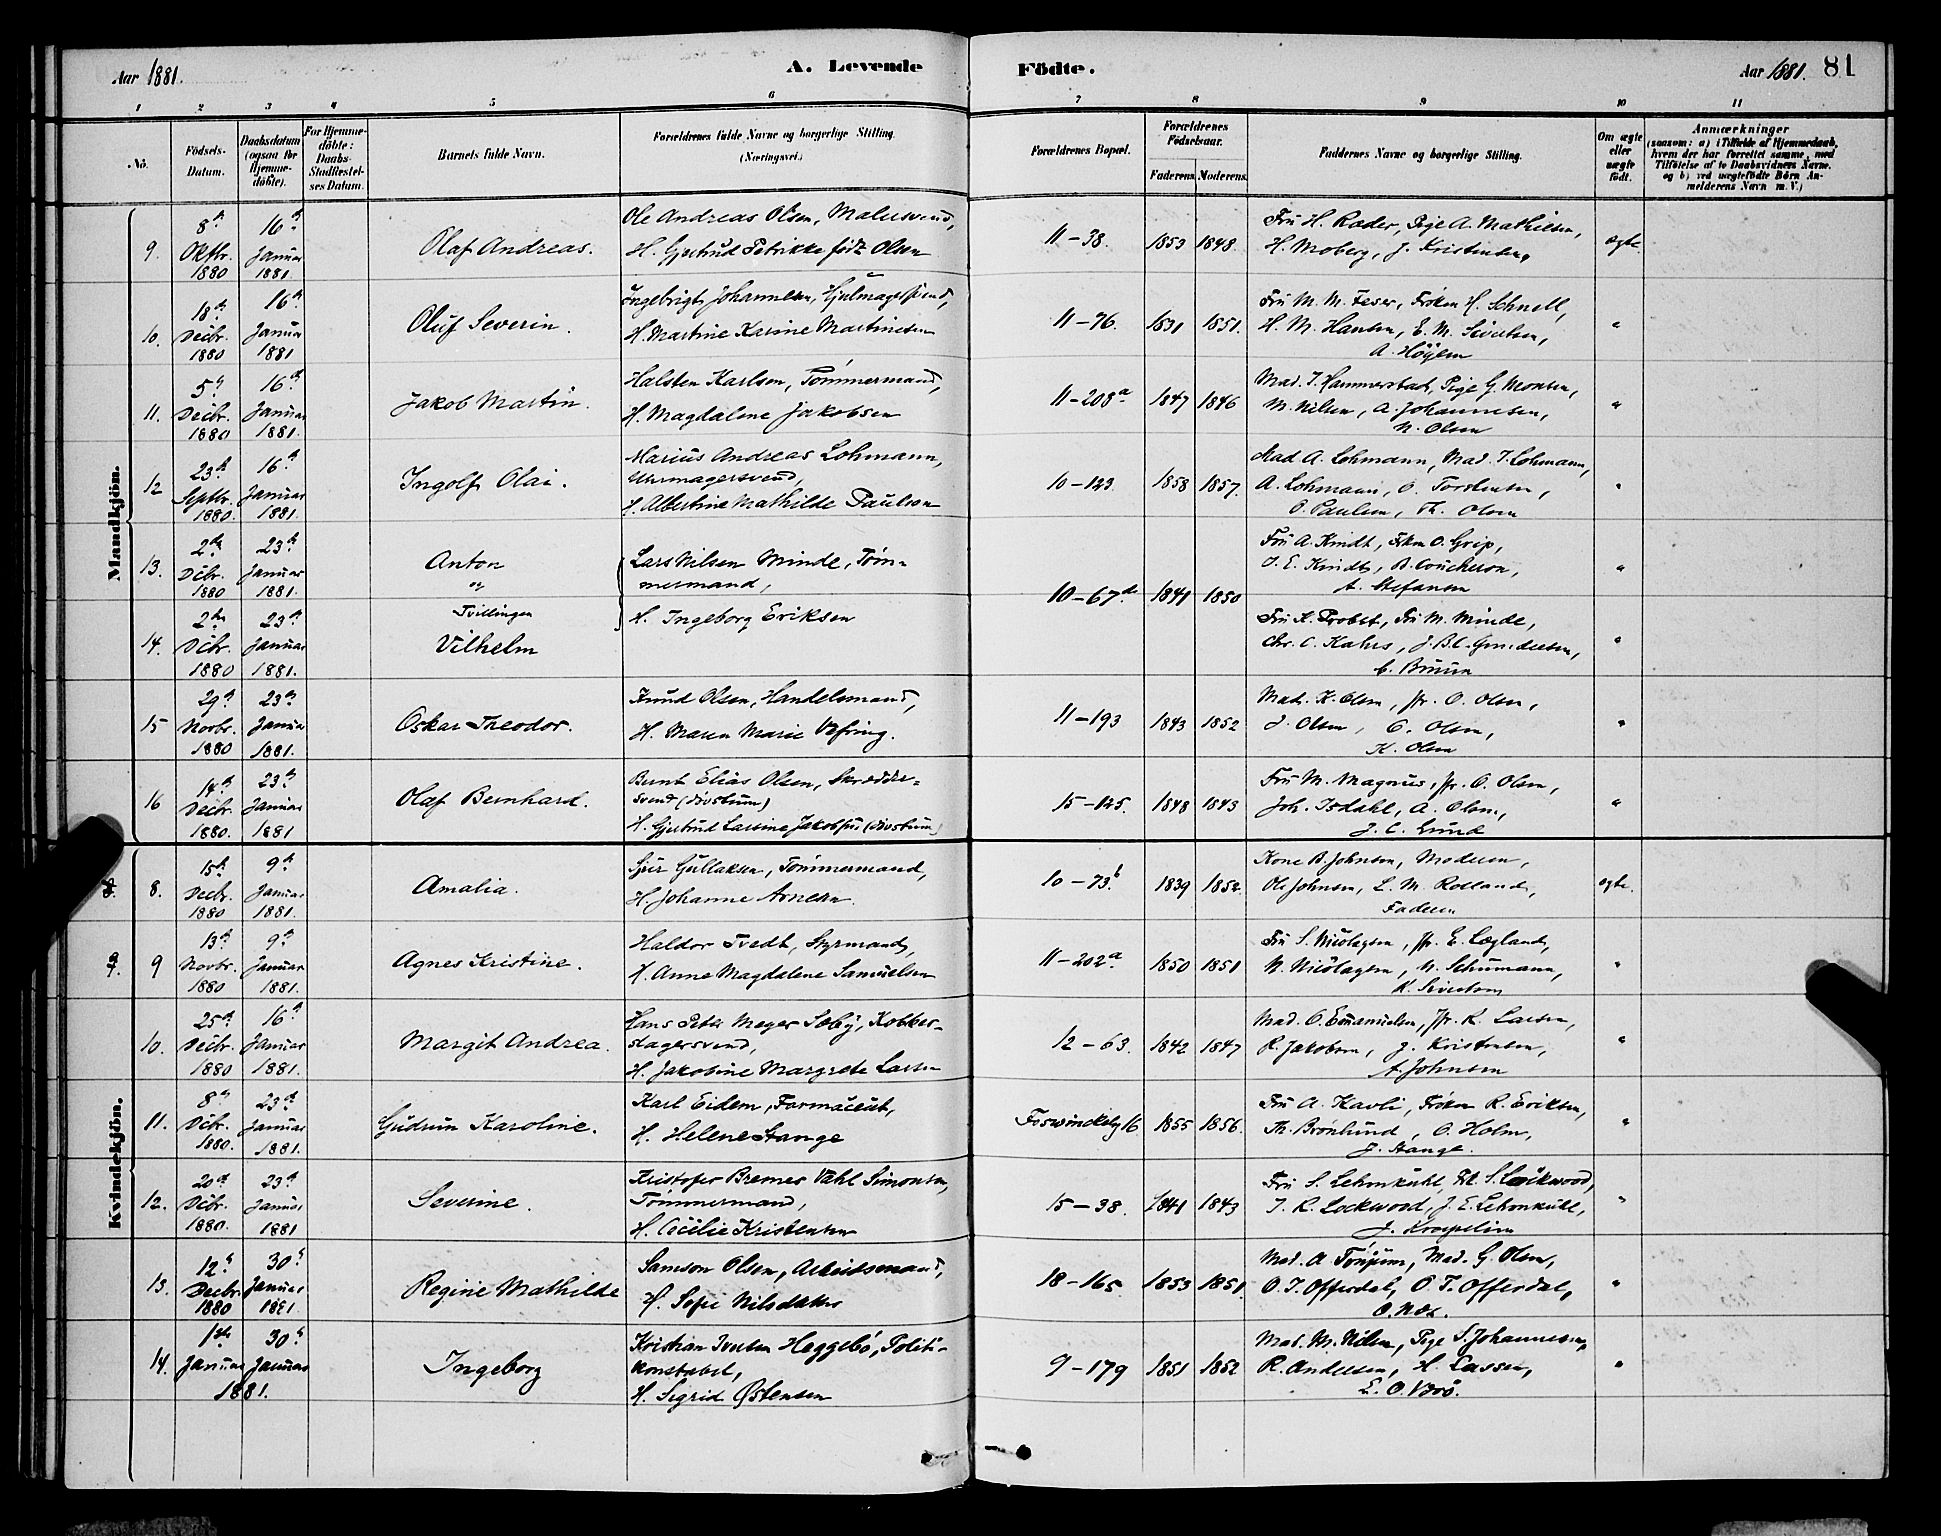 Aar 1881. A. Levende Födte. Aar 1881. 81
1 2 3 4 5 6 7 8 9 10 11
No. Födsels-Datum. Daabsdatum (ogsaa for Hjemmedöbte). For Hjemmedöbte: Daabs-Stadfestelses Datum. Barnets fulde Navn. Forældrenes fulde Navne og borgerlige Stilling. (Næringsvei.) Forældrenes Bopæl. Forældrenes Födselsaar. Faderens Moderens. Faddernes Navne og borgerlige Stilling. Om ægte eller uægte födt. Anmærkninger (saasom: a) i Tilfælde af Hjemmedaab, hvem der har forrettet samme, med Tilföielse af to Daabsvidners Navne, og b) ved uægtefödte Börn Anmelderens Navn m. V.)
Mandkjön.
9. 8de Oktbr. 1880 16de Januar 1881. Olaf Andreas. Ole Andreas Olsen, Malersvend,
H. Gjertrud Petrikke født Olsen 11-38. 1853 1848. Fru H. Ræder, Pige A. Mathiesen,
H. Moberg, J. Kristensen, ægte
10. 18de Decbr. 1880 16de Januar 1881 Oluf Severin. Ingebrigt Johannesen, Hjulmagersvend,
H. Martine Karine Martinesen 11-76. 1831 1851. Fru M. M. Feser, Frøken H. Schnell,
H. M. Hansen, E. M. Sivertsen,
A. Höylem "
11. 5te Decbr. 1880 16de Januar 1881. Jakob Martin. Halsten Karlsen, Tömmermand,
H. Magdalene Jakobsen 11-208a 1847 1846 Mad. J. Hammerstad, Pige G. Monsen,
M. Nilsen, A. Johannesen,
N. Olsen "
12 23de Septbr. 1880. 16de Januar 1881. Ingolf Olai. Marius Andreas Lohmann,
Uhrmagersvend,
H. Albertine Mathilde Paulson 10-123. 1858 1857. Mad A. Lohmann, Mad. J. Lohmann,
A. Lohmann, O. Torstensen,
O. Paulsen, Th. Olsen "
13. 2den Dcbr. 1880 23de Januar 1881. Anton
og
Tvillinger Lars Nilsen Minde, Töm-
mermand,
H. Ingeborg Eriksen 10-67d. 1841 1850 Fru A. Kindt, Frkn O. Grip,
J. E. Kindt, B. Coucheron,
A. Stefansen "
14. 2den Dcbr. 1880 23de Januar 1881. Vilhelm Fru K. Probst, Fru M. Minde,
Chr. C. Kahrs, J. B. C. Gundersen,
C. Bruun "
15 29de Novbr. 1880 23de Januar 1881. Oskar Theodor. Knud Olsen, Handelsmand,
H. Maren Marie Vefring. 11-193 1843 1852 Mad. K. Olsen, Jfr. O. Olsen,
J. Olsen, C. Olsen,
K. Olsen "
16 14de Decbr. 1880. 23de Januar 1881 Olaf Bernhard. Bernt Elias Olsen, Skrædder-
svend (døvstum)
H. Gjertrud Larsine Jakobsen (døvstum) 15-125. 1848 1843 Fru M. Magnus, Jfr. O. Olsen,
Joh. Isdahl, A. Olsen,
J. C. Lund "
Kvindekjön.
8. 15de Decbr. 1880 9de Januar 1881. Amalia. Sjur Gullaksen, Tömmermand,
H. Johanne Arnesen. 10-73b. 1839 1852. Kone B. Johnsen, Moderen,
Ole Johnsen, L. M. Rolland,
Faderen ægte.
9 13de Novbr. 1880 9de Januar 1881. Agnes Kristine. Haldor Tvedt, Styrmand,
H. Anne Magdalene Samuelsen 11-202a. 1850 1851 Fru S. Nicolaysen, Jfr. E. Lægland,
N. Nicolaysen, M. Schumann,
K. Sivertsen "
10. 25de Decbr. 1880 16de Januar 1881. Margit Andrea. Hans Peter Meyer Søby, Kobber-
slagersvend,
H. Jakobine Margrete Larsen 12-63. 1842 1847 Mad. O. Emanuelsen, Jfr. K. Larsen,
R. Jakobsen, J. Kristensen,
A. Johnsen "
11. 8de Dcbr. 1880. 23de Januar 1881. Gudrun Karoline. Karl Eidem, Farmaceut,
H. Helene Stange Forvinkelsg 16 1855 1856. Fru A. Kavli, Frøken R. Eriksen,
Th. Brønlund, O. Holm,
J. Stange. "
12. 20de Dcbr. 1880. 23de Januar 1881 Severine. Kristofer Bremer Vahl Simonsen,
Tömmermand,
H. Cecilie Kristensen 15-38. 1841 1843 Fru S. Lehmkuhl, Frk. S. Lockwood,
J. R. Lockwood, J. E. Lehmkuhl,
J. Kroepelien "
13. 12te Decbr. 1880 30te Januar 1881. Regine Mathilde Samson Olsen, Arbeidsmand,
H. Sofie Nilsdatter 18-165 1853 1851. Mad. A Tönjum, Mad. G. Olsen,
O. J. Offerdal, O. T. Offerdal, "
14. 1ste Januar 30te Januar
1881. Ingeborg Kristian Iversen Haggebö, Politi-
konstabel,
H. Sigrid Østensen 9-179 1851 1852 Mad. M. Nilsen, Pige S. Johannesen,
R. Andersen, H. Lassen,
E. O. Brö. "